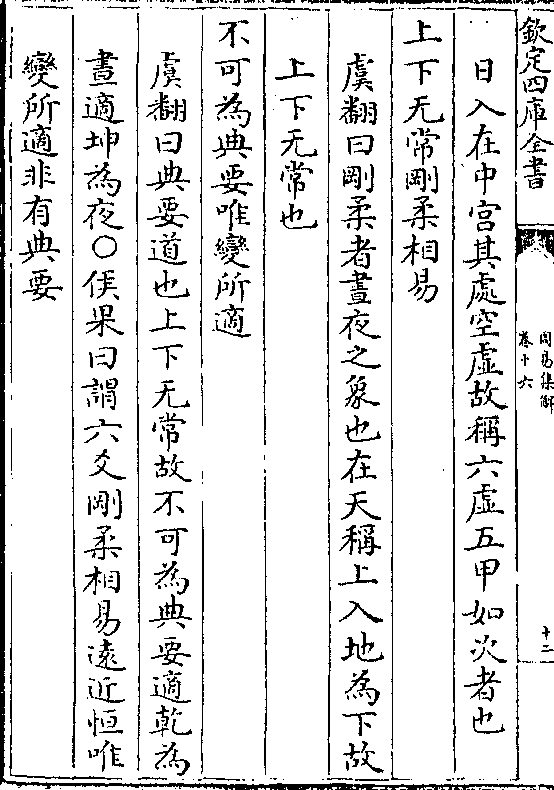 欽定四庫全書
周易集解
卷十六
十二
日入在中宮其處空虛故稱六虛五甲如次者也
上下无常剛柔相易
虞翻曰剛柔者晝夜之象也在天稱上入地為下故
上下无常也
不可為典要唯變所適
虞翻曰典要道也上下无常故不可為典要適乾為
晝適坤為夜〇侯果曰謂六爻剛柔相易遠近恒唯
變所適非有典要